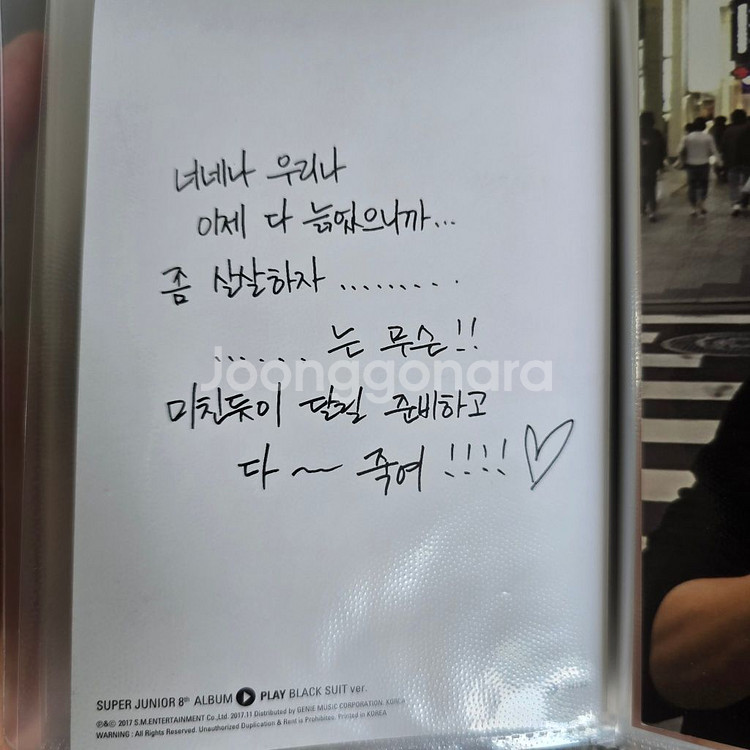 너네나 우리나
이제 다 늙었으니까...
좀 살살하자 .........
...... 는 무슨!!
Joonggonara
미친듯이 달릴 준비하고
다~ 죽여 !!!! ♡
SUPER JUNIOR 8th ALBUM ▶ PLAY BLACK SUIT ver.
℗&© 2017 S.M.ENTERTAINMENT Co.,Ltd. 2017.11 Distributed by GENIE MUSIC CORPORATION. KOREA
WARNING : All Rights Reserved. Unauthorized Duplication & Rent is Prohibites. Printed in KOREA